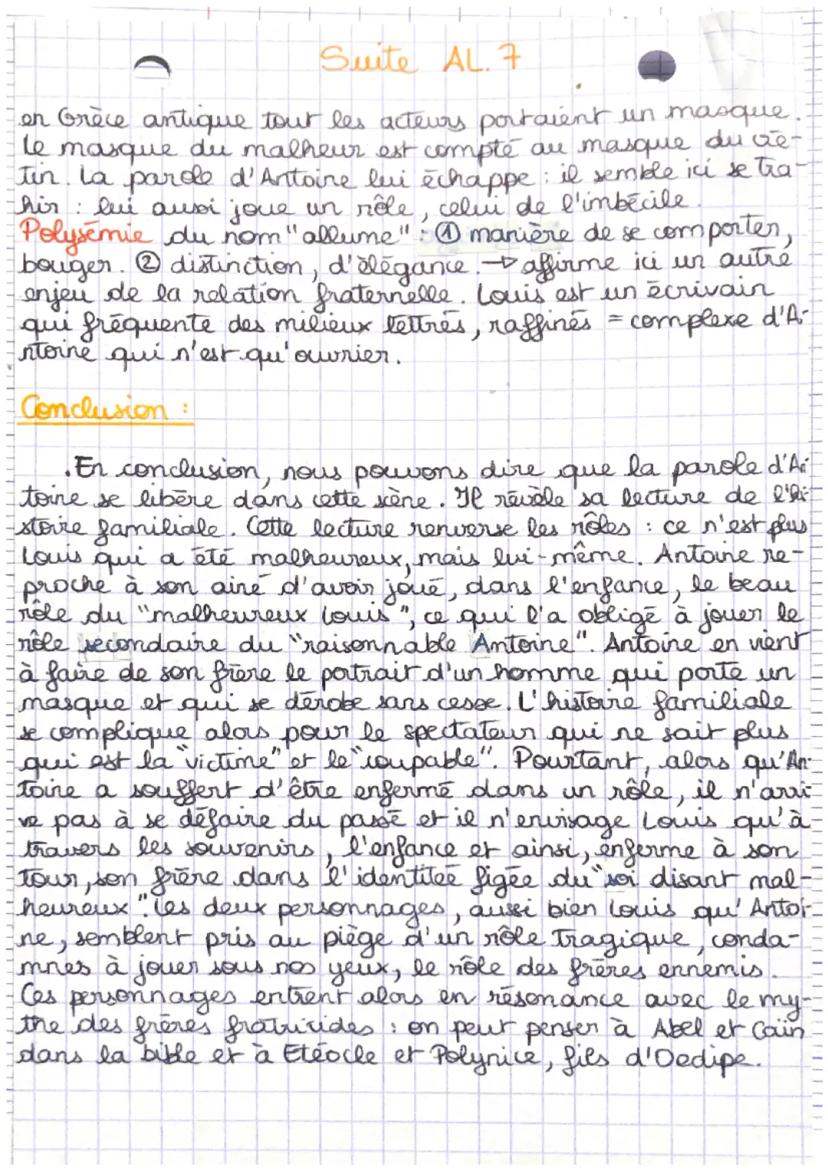 Suite AL. 7
en Grèce antique tout les acteurs portaient un masque.
Le masque du malheur est compté au masque du cré-
tin. La parole d'Antoine lui échappe : il semble ici se tra-
hir : lui aussi joue un rôle, celui de l'imbécile.
Polysémie du nom "allume" : ① manière de se comporter,
bouger. ② distinction, d'élégance. → affirme ici un autre
enjeu de la relation fraternelle. Louis est un écrivain
qui fréquente des milieux lettrés, raffinés = complexe d'A-
ntoine qui n'est qu'ouvrier.
Conclusion :
.En conclusion, nous pouvons dire que la parole d'An
toine se libère dans cette scène. Il révèle sa lecture de l'hi
stoire familiale. Cette lecture renverse les rôles : ce n'est plus
Louis qui a été malheureux, mais lui-même. Antoine re-
proche à son ainé d'avoir joué, dans l'enfance, le beau
rôle du "malheureux Louis", ce qui l'a obligé à jouer le
rôle secondaire du "raisonnable Antoine". Antoine en vient
à faire de son frère le portrait d'un homme qui porte un
masque et qui se dérobe sans cesse. L'histoire familiale
se complique alors pour le spectateur qui ne sait plus
qui est la "victime" et le "coupable". Pourtant, alors qu'An-
toine a souffert d'être enfermé dans un rôle, il n'arri
ve pas à se défaire du passé et il n'envisage Louis qu'à
travers les souvenirs, l'enfance et ainsi, enferme à son
tour, son frère dans l'identitée figée du "soi disant mal-
heureux". Les deux personnages, aussi bien Louis qu'Antoi-
ne, semblent pris au piège d'un rôle tragique, conda-
mnés à jouer sous nos yeux, le rôle des frères ennemis.
Ces personnages entrent alors en résonance avec le my-
the des frères fratricides : on peut penser à Abel et Caïn
dans la bible et à Etéocle et Polynice, fils d'Oedipe.